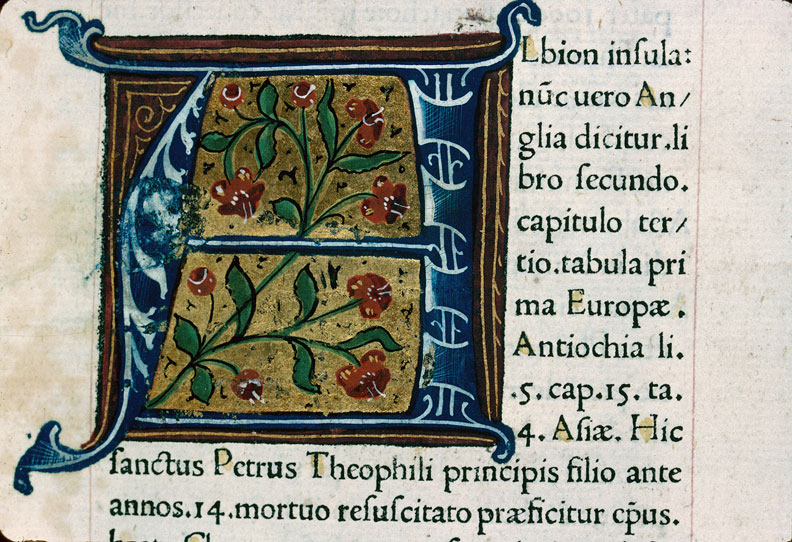 Albion insula:
nūc uero An/
glia dicitur.li
bro secundo.
capitulo ter/
tio.tabula pri
ma Europæ.
Antiochia li.
.5. cap.15. ta.
4. Asiæ. Hic
sanctus Petrus Theophili principis filio ante
annos.14.mortuo resuscitato præficitur cp̄us.